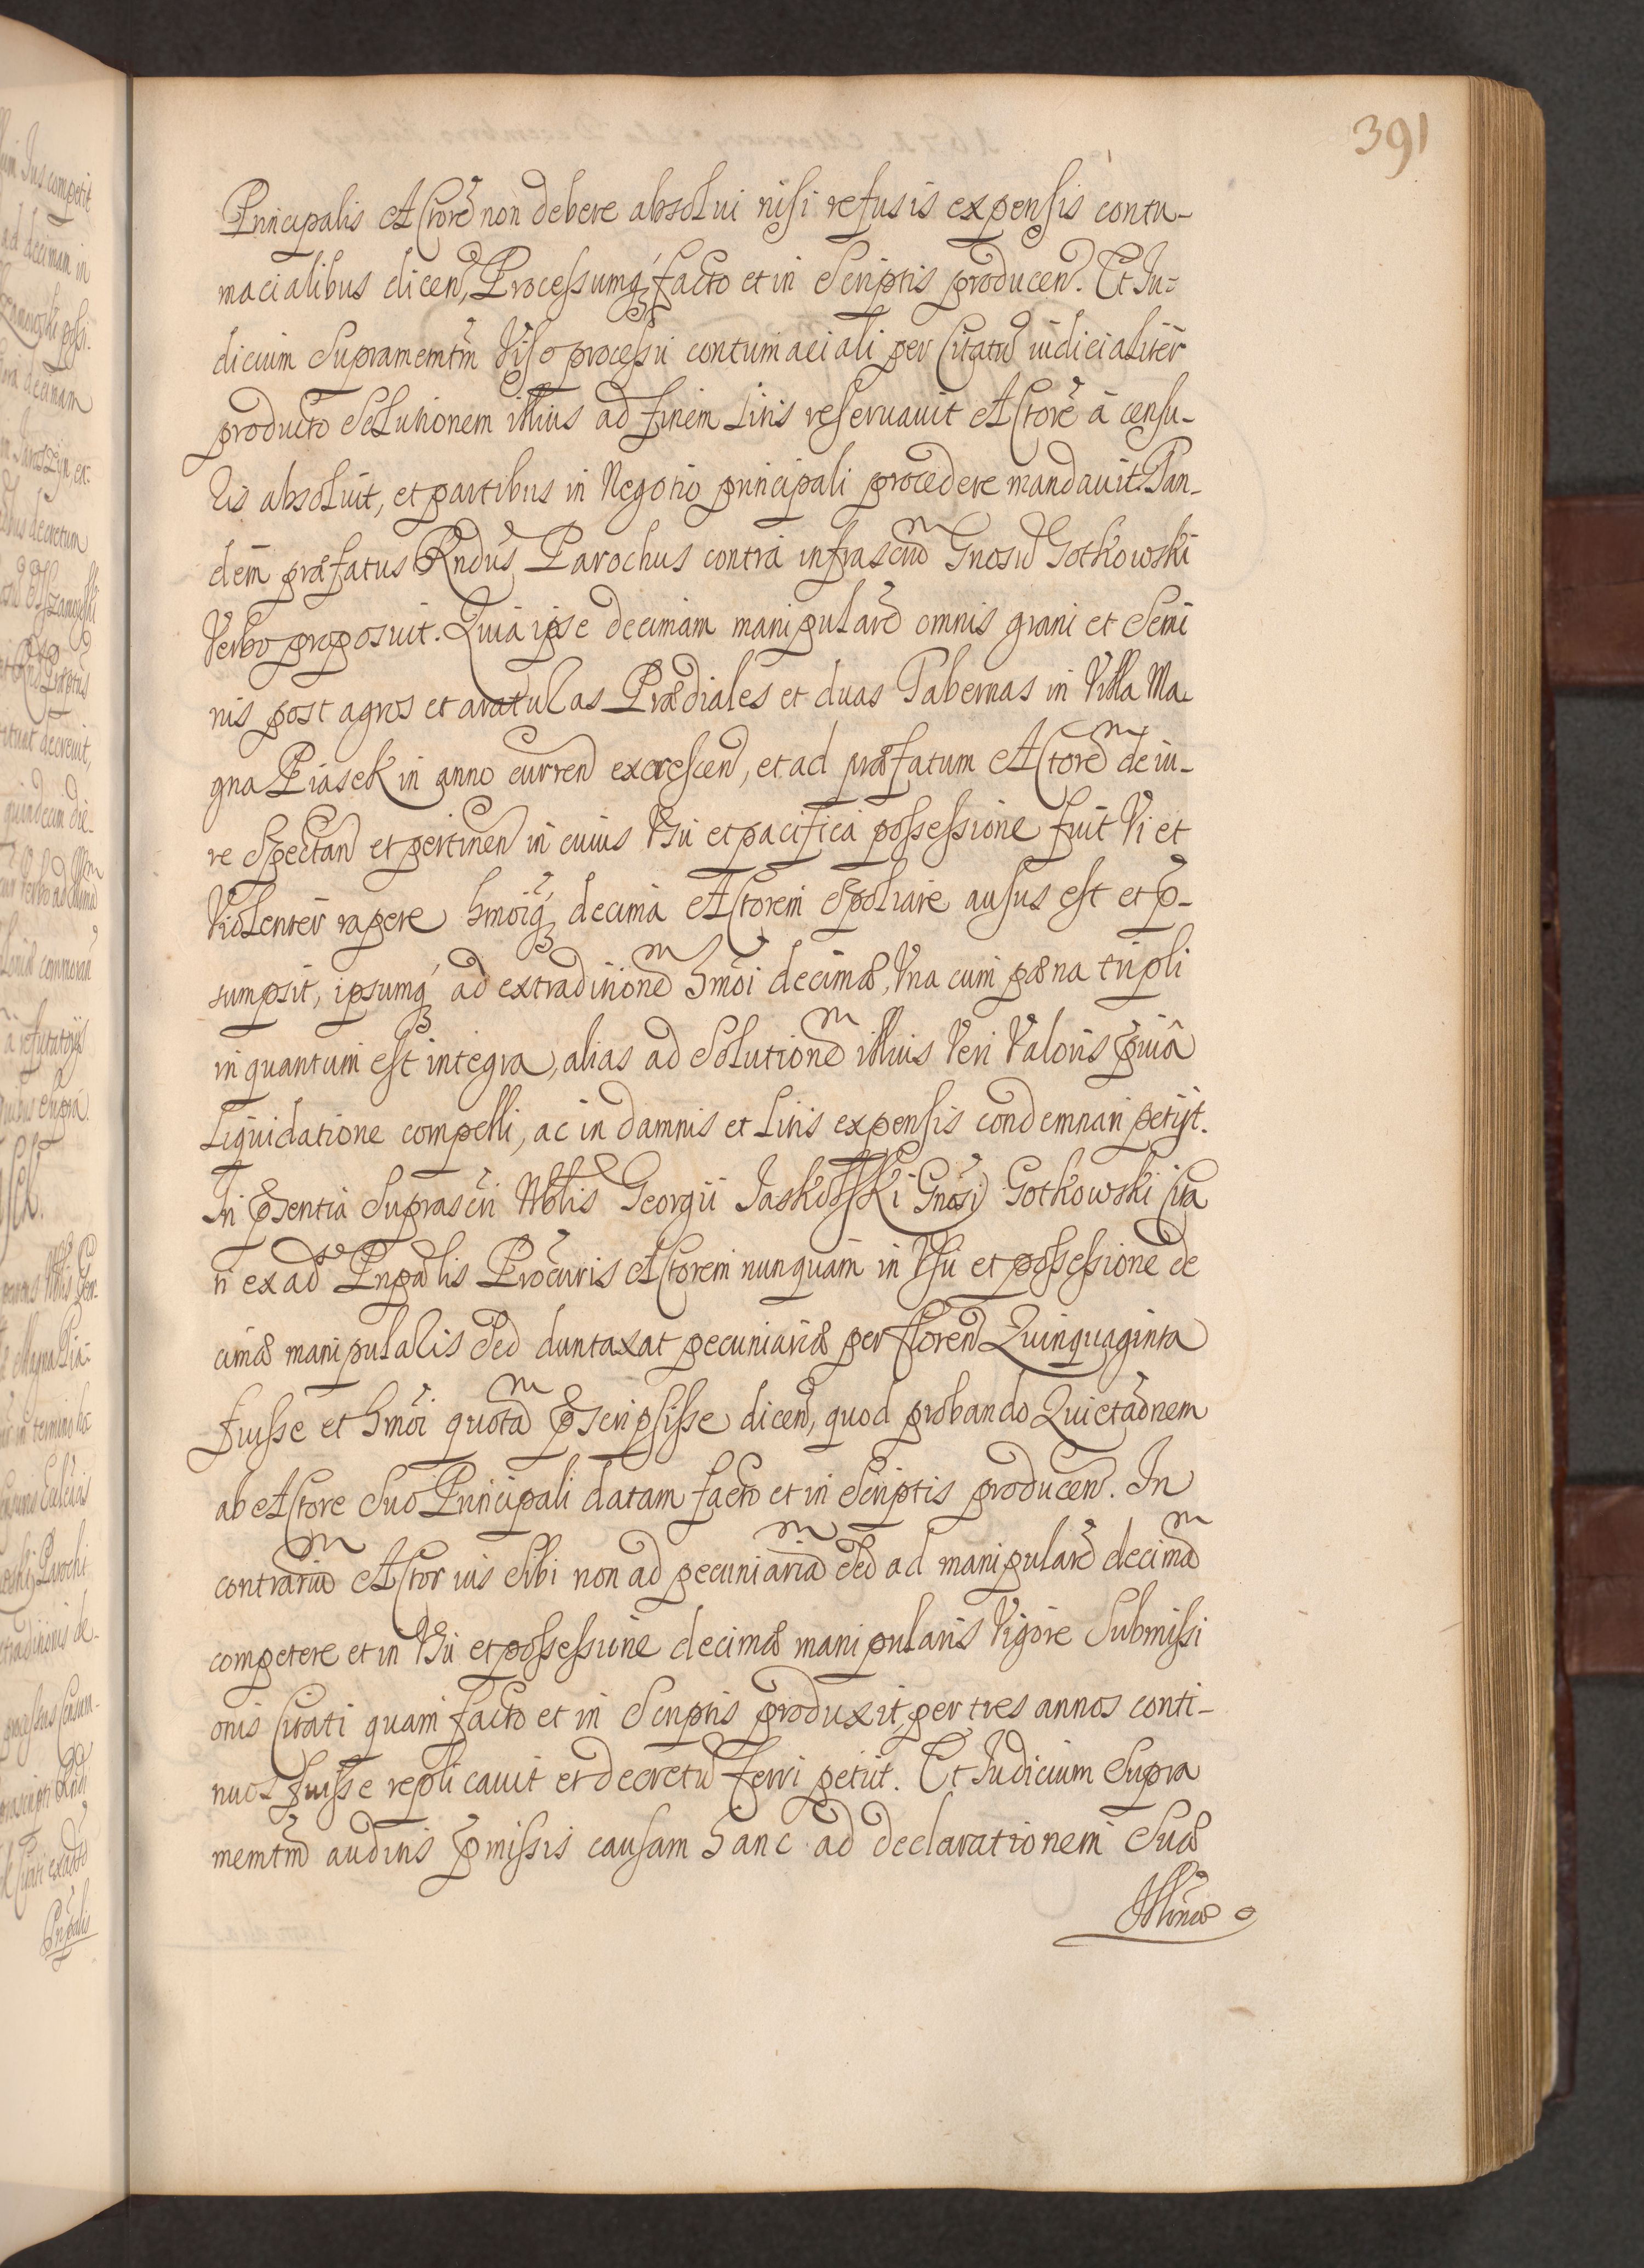 391
Principalis Actorē non debere absolui nisi refusis expensis contu-
macialibus dicen, Processumq facto et in Scriptis producen. Et Iu=
dicium Supramemtm Viso processu contumaciali per Citatū iudicialiter
producto Solutionem illius ad finem Litis reseruauit Actorē á censu-
ris absoluit, et partibus in Negotio principali procedere mandauit. Tan-
dem præfatus Rndus Parochus contra infrascrm Gnosū Gotkowski
Verbo proposuit. Quia ipse decimam manipularē omnis grani et Semi
nis post agros et aratulas Prædiales et duas Tabernas in Villa Ma
gna Piasek in anno curren excrescen, et ad præfatum Actorem de iu-
re Spectan et pertinen in cuius Vsu et pacifica possessione fuit Vi et
Violenter rapere hmōiq decimā Actorem Spoliare ausus est et p-
sumpsit, ipsumq ad extraditionem hmōi decimæ, Vna cum pæna tripli
in quantum est integra, alias ad Solutionem illius Veri Valoris pruiâ
Liquidatione compelli, ac in damnis et Litis expensis condemnari petijt.
In psentia Suprascri Nblis Georgii Iaskolski Gnosi Gotkowski Cita
ti ex ad Prnpalis Procuris Actorem nunquam in Vsu et possessione de
cimæ manipulalis Sed duntaxat pecuniariæ per floren Quinquaginta
fuisse et hmōi quotam pscripsisse dicen, quod probando Quietaōnem
ab Actore Suo Principali datam facto et in Scriptis producen. In
contrariū Actor ius Sibi non ad pecuniariam Sed ad manipularē decimam
competere et in Vsu et possessione decimæ manipularis Vigore Submissi
onis Citati quam facto et in Scriptis produxit, per tres annos conti-
nuos fuisse replicauit et decretū ferri petiit. Et Iudicium Supra
memtm auditis pmissis causam hanc ad declarationem Suæ
Illōnæ